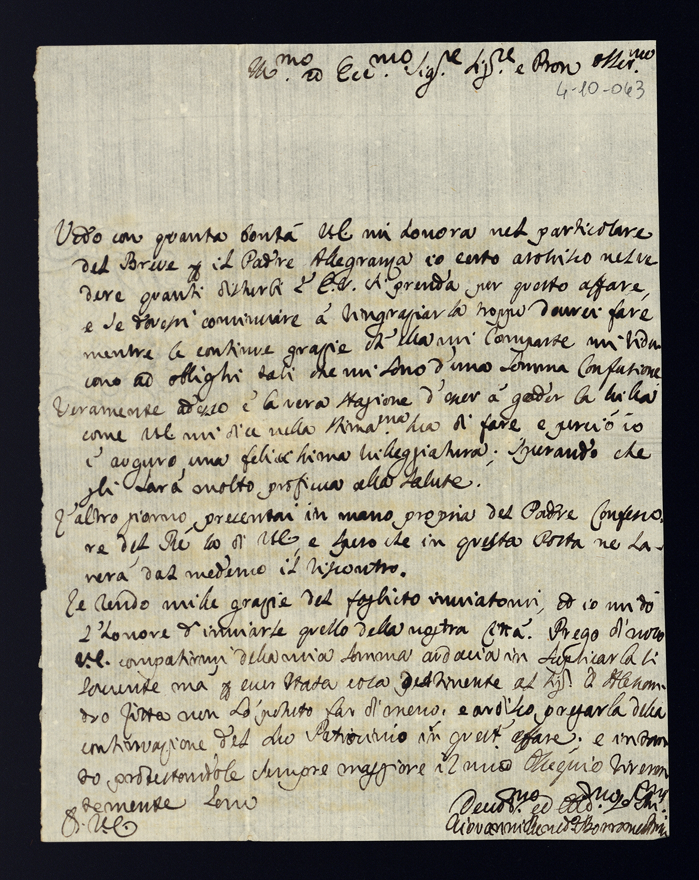 Ill.mo ed Ecc.mo Sig.re Sig.re e Pron Oss.mo
4-10-043
Vedo con quanta bontà VE mi honora nel particolare
del Breve p il Padre Allegranza io certo arohisco nel ve
dere quanti disturbi l'E.V. si prenda per questo affare,
e se dovessi cominciare à ringraziarla troppo dourei fare
mentre le continue grazie ch'ella mi comparte mi ridu-
cono ad oblighi tali che mi sono d'una somma confusione
Veramente adesso è la vera stagione d'esser à goder la villa
come VE mi dice nella stima.ma sua di fare e perciò io
l'auguro una felicissima villeggiatura; sperando che
gli sarà molto proficua alla salute.
L'altro giorno presentai in mano propria del Padre Confesso-
re del Re la di VE, e spero che in questa Posta ne la-
verà dal medemo il riscontro.
Le rendo mille grazie del foglietto inviatomi, ed io mi dò
l'honore d'inviarle quello della nostra Città. Prego di novo
VE. compatirmi della mia somma audacia in suplicarla si
sovente ma p esser stata cosa pertinente al Sig. D Alesan-
dro Litta non hò potuto far di meno. e ardisco pregarla della
continuazione del suo Patrocinio in quest'affare. e in tan
to protestandole sempre maggiore il mio Ossequio riveren
temente sono
D. VE
Giovanni